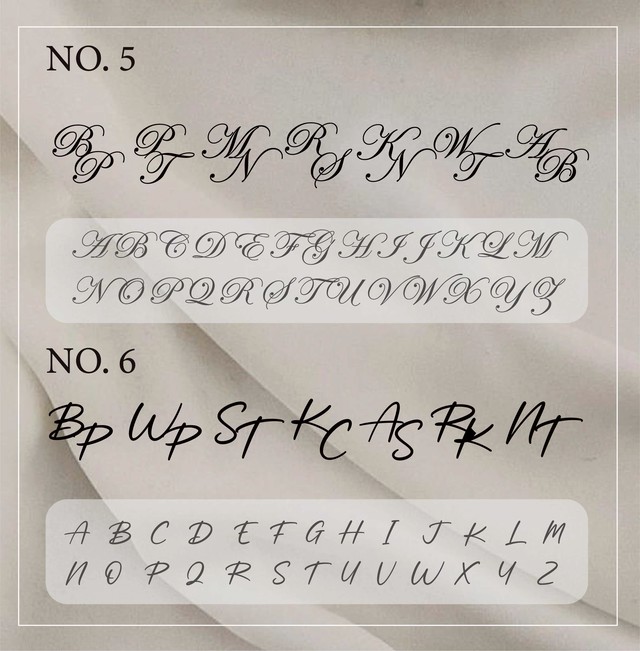 NO. 5
BP PT MN RS KN WT AB
ABCDEFGHIJKLM
NOPQRSTUVWXYZ
NO. 6
BP WP ST KC AS RK NT
A B C D E F G H I J K L M
N O P Q R S T U V W X Y Z